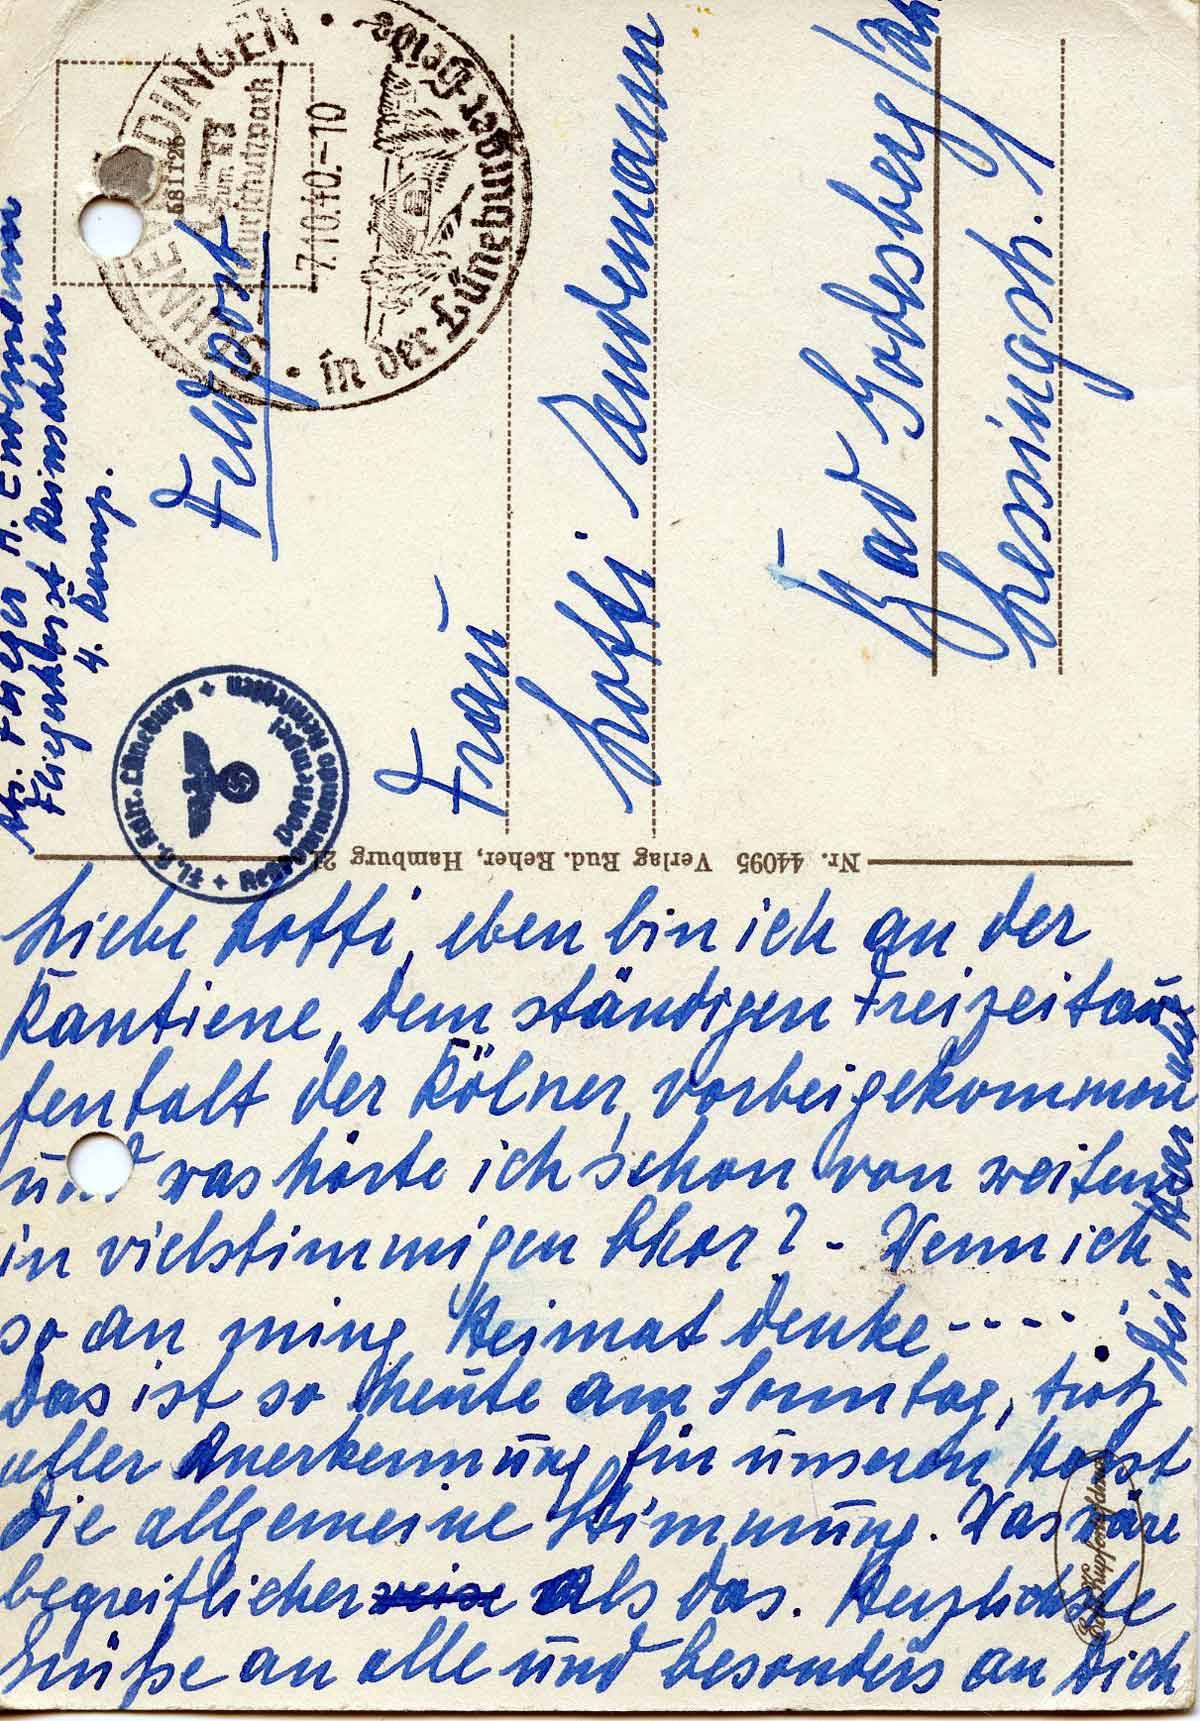 Liebe Lotti, eben bin ich an der
Kantiene, dem ständigen Freizeitauf-
fenhalt der Kölner, vorbeigekommen
und was hörte ich schon von weitem
in vielstimmigen Chor? - Wenn ich
so an ming Heimat denke ----.
Das ist so heute am Sonntag, trotz
aller Anerkennung für unseren Horst
die allgemeine Stimmung. Was wäre
begreiflicher als das. Herzlichste
Grüße an alle und besonders an Dich
Dein
Nr. 44095 Verlag Rud. Reher, Hamburg 21
Abs. Flieger H. Endemann
Fliegerhorst Reinsehlen
4. Komp.
Feldpost
Frau
Lotti Andemann
Bad Godesberg /Rh.
Lessingstr. 1
SCHNEVERDINGEN
in der Lüneburger Heide
zum
Naturschutzpark
7.10.40.-10
Fl. H. Kdtr. Lüneburg
Echte Kupfertiefdruck